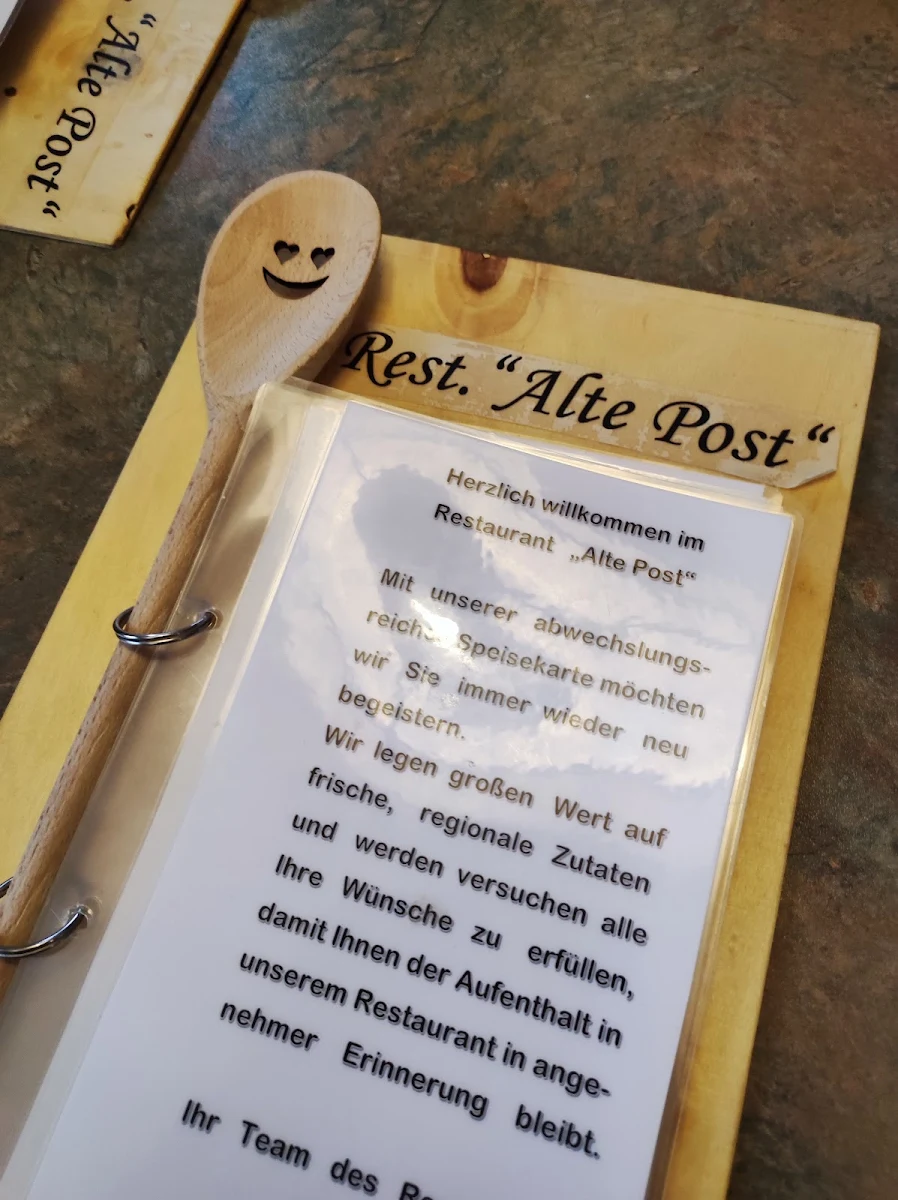 “Alte Post“
Rest. “Alte Post“
Herzlich willkommen im
Restaurant „Alte Post“
Mit unserer abwechslungs-
reichen Speisekarte möchten
wir Sie immer wieder neu
begeistern.
Wir legen großen Wert auf
frische, regionale Zutaten
und werden versuchen alle
Ihre Wünsche zu erfüllen,
damit Ihnen der Aufenthalt in
unserem Restaurant in ange-
nehmer Erinnerung bleibt.
Ihr Team des